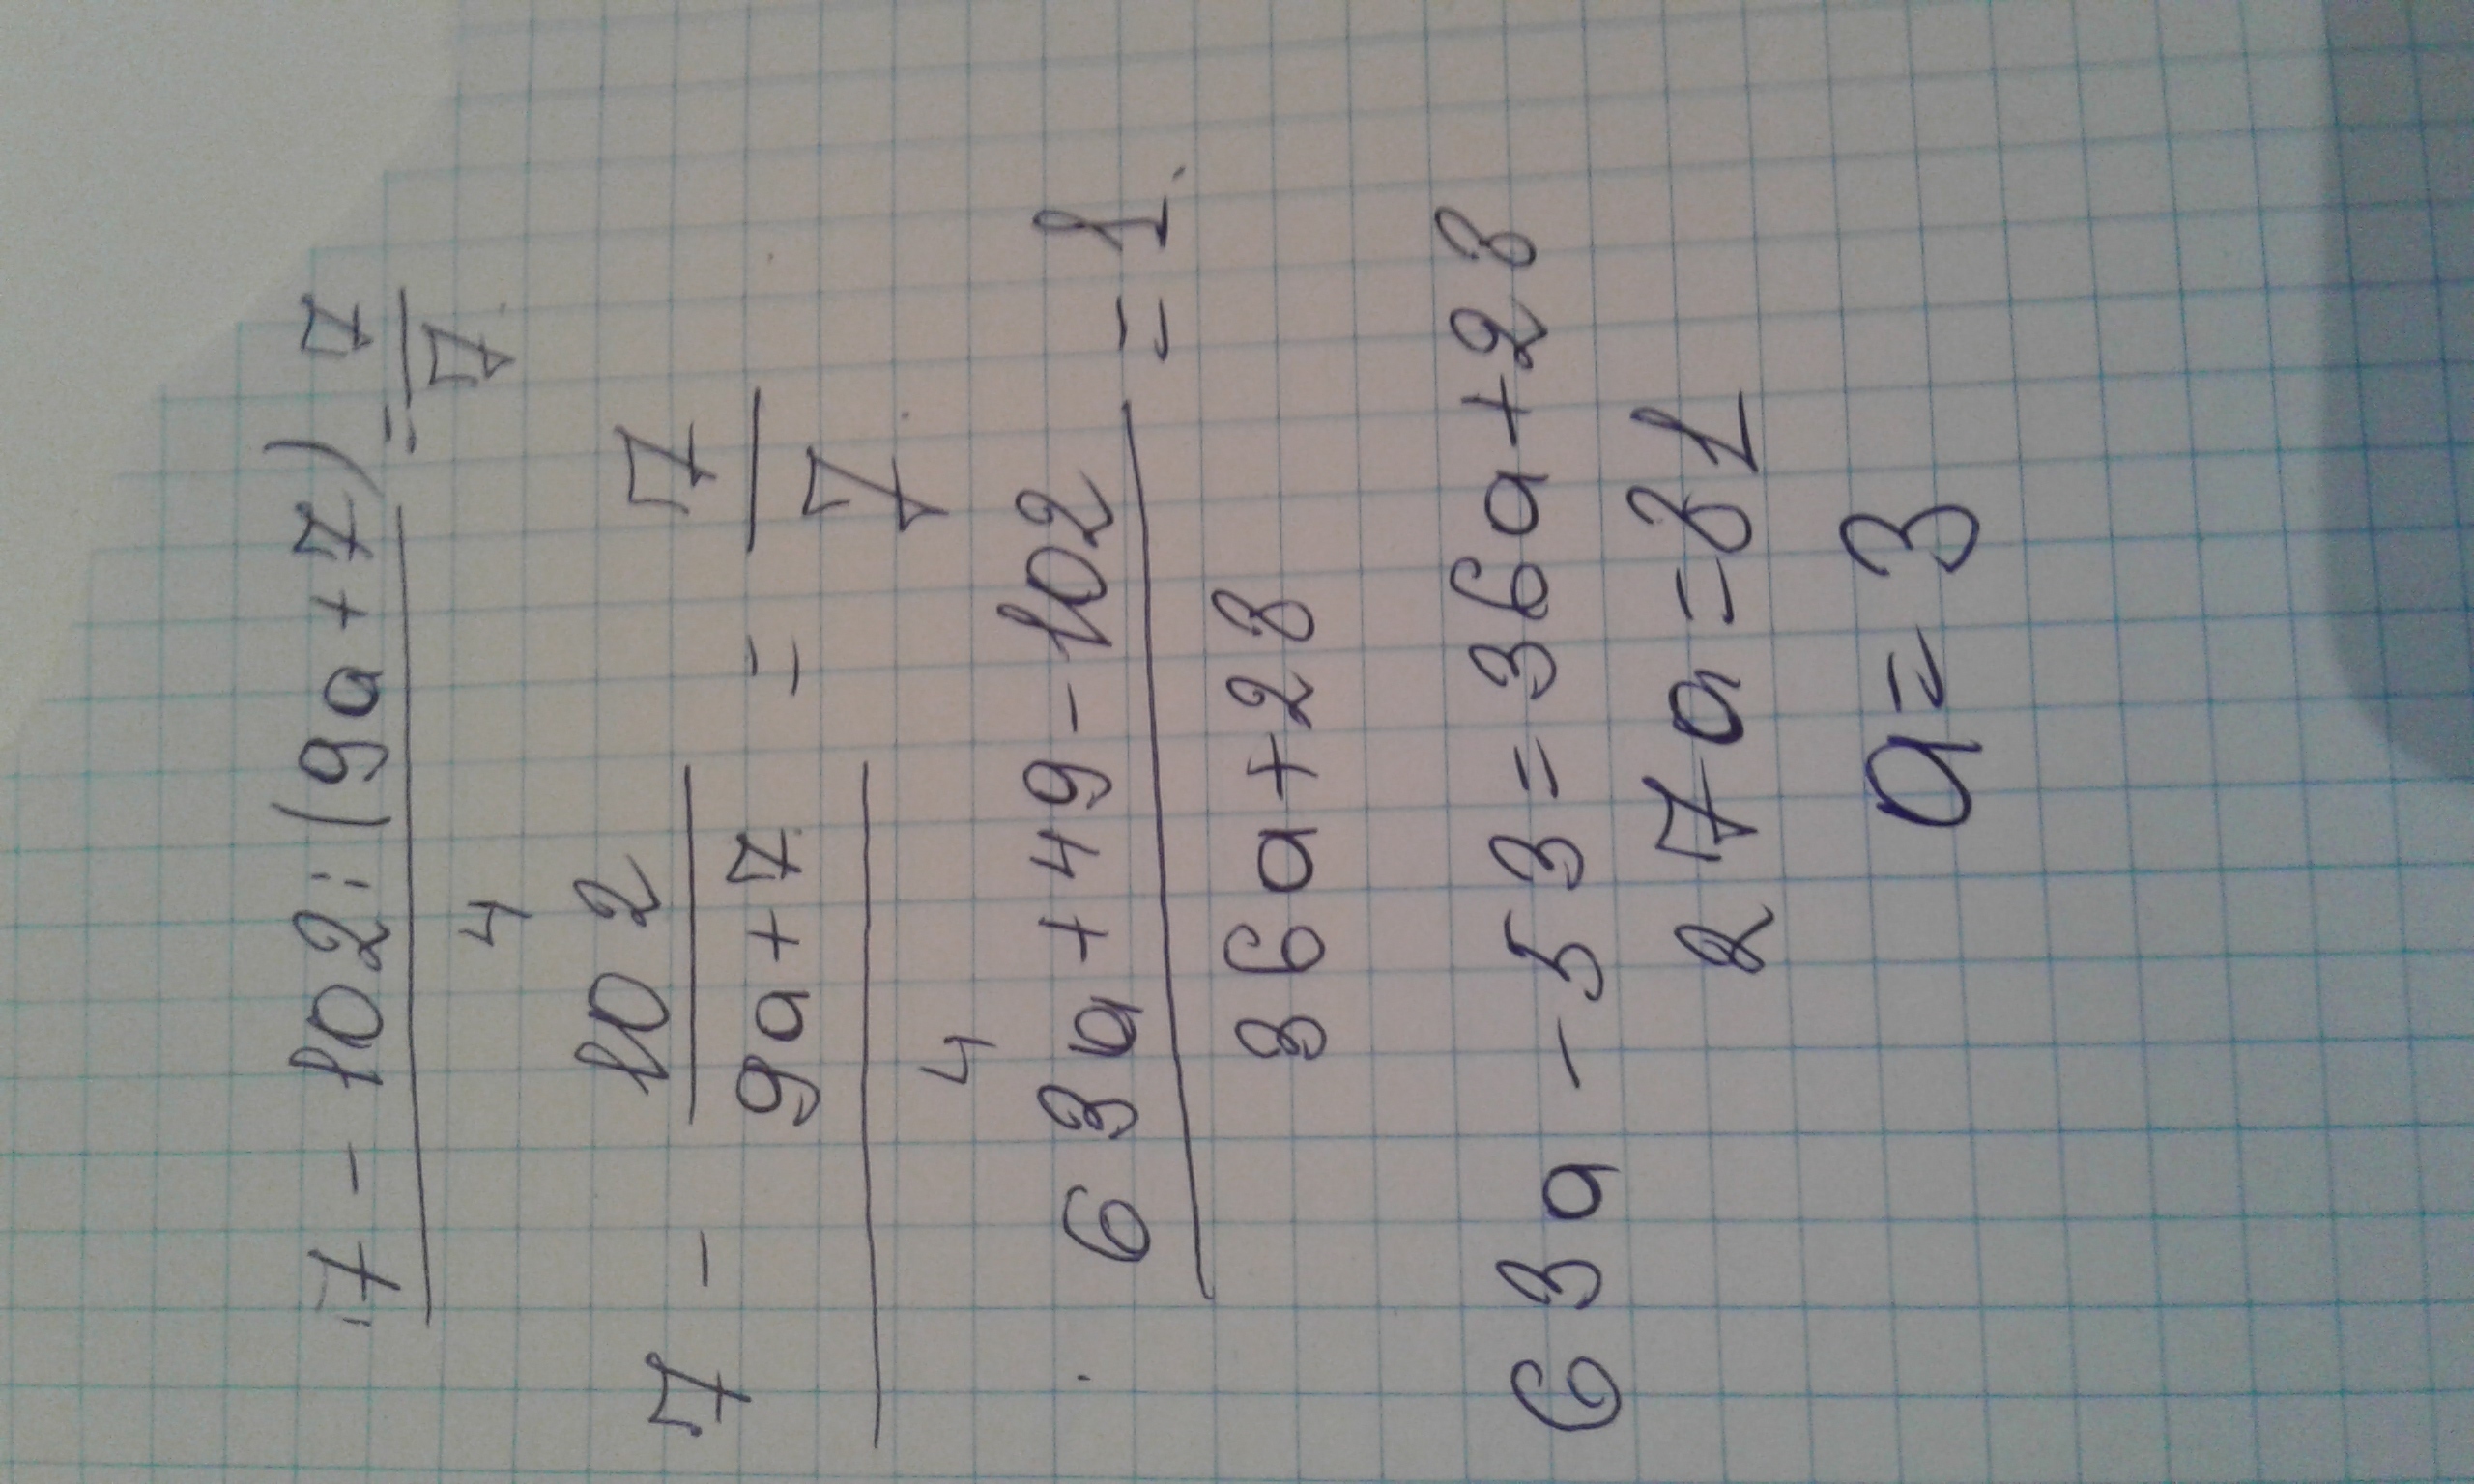 7 - 102 : (9a + 7) / 4 = 7/7
7 - 102/(9a + 7) / 4 = 7/7
63a + 49 - 102 / 36a + 28 = 1
63a - 53 = 36a + 28
27a = 81
a = 3